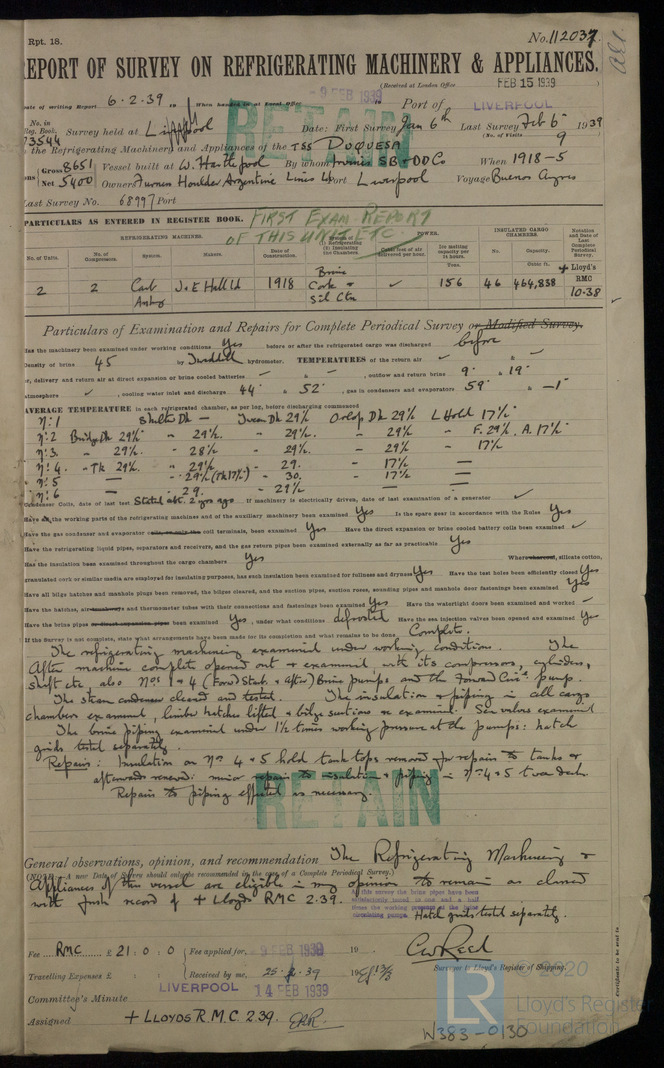 Rpt. 18.
No. 112037.
REPORT OF SURVEY ON REFRIGERATING MACHINERY & APPLIANCES.
(Received at London Office FEB 15 1939
Date of writing Report 6.2.39 When handed in at Local Office 9 FEB 1939 Port of LIVERPOOL
No. in Reg. Book. 73544 Survey held at Liverpool Date: First Survey Jan 6th Last Survey Feb 6th 1939
(No. of Visits 9
RETAIN
on the Refrigerating Machinery and Appliances of the TSS DUQUESA
Tons Gross 8651 Net 5400 Vessel built at W. Hartlepool By whom Irvines SB & DD Co When 1918-5
Owners Furness Houlder Argentine Lines Ld Port Liverpool Voyage Buenos Ayres
Last Survey No. 68997 Port
PARTICULARS AS ENTERED IN REGISTER BOOK. FIRST EXAM. REPORT OF THIS UNIT ETC.
REFRIGERATING MACHINES. POWER. INSULATED CARGO CHAMBERS. Notation and Date of Last Complete Periodical Survey.
No. of Units. No. of Compressors. System. Makers. Date of Construction. System of (1) Refrigerating (2) Insulating the Chambers Cubic feet of air delivered per hour. Ice melting capacity per 24 hours. Tons. No. Capacity. Cubic ft.
2 2 Carb Anhy J & E Hall Ld 1918 Brine Cork & Sil Ctn ✓ 156 46 464,838 + Lloyd's RMC 10.38
Particulars of Examination and Repairs for Complete Periodical Survey or Modified Survey.
Has the machinery been examined under working conditions Yes before or after the refrigerated cargo was discharged before
Density of brine 45 by Twaddell hydrometer. TEMPERATURES of the return air ✓ & ✓
or, delivery and return air at direct expansion or brine cooled batteries ✓ & ✓, outflow and return brine 9° & 19°
atmosphere ✓, cooling water inlet and discharge 44° & 52°, gas in condensers and evaporators 59° & -1°
AVERAGE TEMPERATURE in each refrigerated chamber, as per log, before discharging commenced
No: 1 Shelter Dk — Tween Dk 29½ Orlop Dk 29½ L Hold 17½°
No: 2 Bridge Dk 29½° " 29½. " 29½. " 29½ " F. 29½. A. 17½°
No: 3. " 29½. " 28½ " 29½. " 29½ " 17½
No: 4. " Tk 29½. " 29½ " 29. " 17½ —
No: 5 — " 29½ (Tk 17½°) " 30. " 17½ —
No: 6 — " 29. " 29½ — —
Condenser Coils, date of last test Stated abt. 2 yrs ago. If machinery is electrically driven, date of last examination of a generator ✓
Have all the working parts of the refrigerating machines and of the auxiliary machinery been examined Yes Is the spare gear in accordance with the Rules Yes
Have the gas condenser and evaporator coil terminals, been examined Yes Have the direct expansion or brine cooled battery coils been examined ✓
Have the refrigerating liquid pipes, separators and receivers, and the gas return pipes been examined externally as far as practicable Yes
Has the insulation been examined throughout the cargo chambers Yes Where charcoal, silicate cotton,
granulated cork or similar media are employed for insulating purposes, has such insulation been examined for fullness and dryness Yes Have the test holes been efficiently closed Yes
Have all bilge hatches and manhole plugs been removed, the bilges cleared, and the suction pipes, suction roses, sounding pipes and manhole door fastenings been examined Yes
Have the hatches, air trunkways and thermometer tubes with their connections and fastenings been examined Yes Have the watertight doors been examined and worked ✓
Have the brine pipes or direct expansion pipes been examined Yes, under what conditions defrosted Have the sea injection valves been opened and examined Yes
If the Survey is not complete, state what arrangements have been made for its completion and what remains to be done Complete.
The refrigerating machinery examined under working conditions. The
After machine complete opened out & examined, with its compressors, cylinders,
shaft etc. also Nos 1 & 4 (Forwd Starb & After) Brine pumps and the Forward Circ. pump.
The steam condenser cleaned and tested. The insulation & piping in all cargo
chambers examined, limber hatches lifted & bilge suctions examined. Sea valves examined
The brine piping examined under 1½ times working pressure at the pumps: hatch
grids tested separately.
Repairs: Insulation on No. 4 & 5 hold tank tops removed for repairs to tanks &
afterwards renewed: minor repairs to insulation & piping in No. 4 & 5 tween decks
Repairs to piping effected as necessary.
RETAIN
General observations, opinion, and recommendation The Refrigerating Machinery &
(NOTE.—A new Date of Survey should only be recommended in the case of a Complete Periodical Survey.)
Appliances of this vessel are eligible in my opinion to remain as classed
with fresh record of + Lloyds RMC 2.39.
At this survey the brine pipes have been satisfactorily tested to one and a half times the working pressure at the brine circulating pumps.
Hatch grids tested separately.
Fee RMC £ 21 : 0 : 0 Fee applied for, 9 FEB 1939 19
Travelling Expenses £ : : Received by me, 25.2.39 19
Surveyor to Lloyd's Register of Shipping.
Committee's Minute LIVERPOOL 14 FEB 1939
Assigned + LLOYDS R.M.C. 2.39.
© 2020
LR
Lloyd's Register
Foundation
W383-0130
Certificate to be sent to